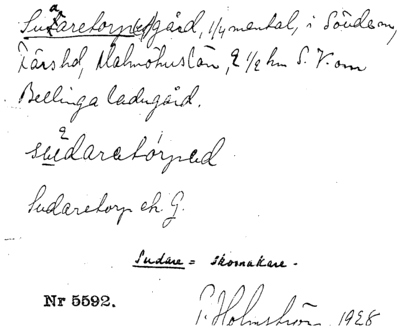 Sudaretorp(s)gård, 1/4 mantal, i Södern,
Färs hd, Malmöhus län, 2 1/2 km S.V. om
Bellinga ladugård.
sudaretorp
Sudaretorp ek. G.
Sudare = skomakare.
Nr 5592.
P. Holmström 1928